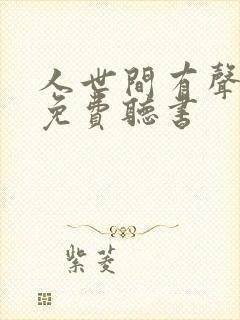 人世間有聲
免費聽書
紫菱